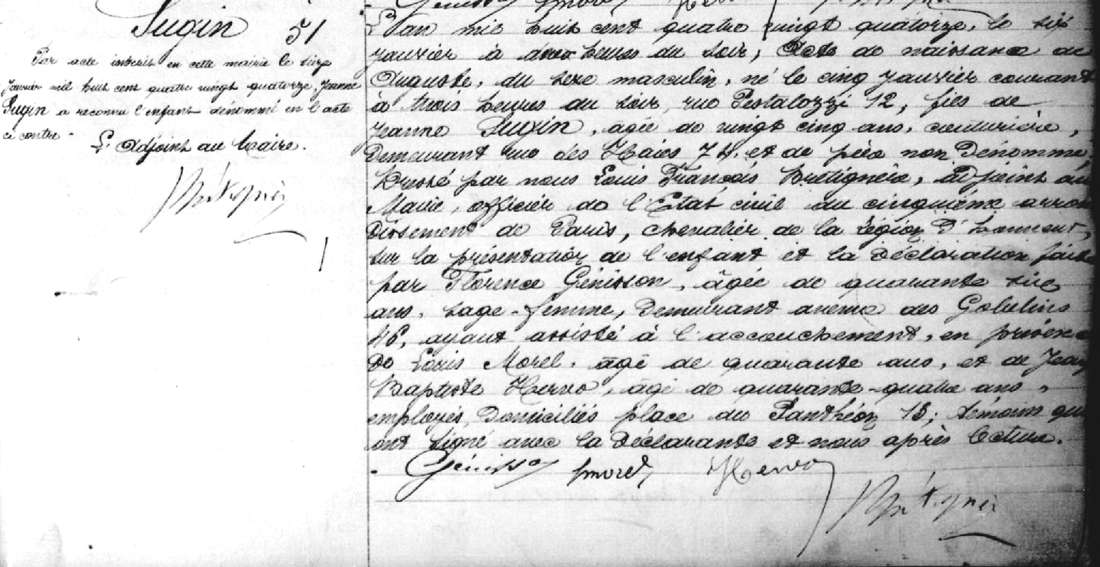 Sugin 51
Par acte inscrit en cette mairie le seize
Janvier mil huit cent quatre vingt quatorze, Jeanne
Sugin a reconnu l'enfant dénommé en l'acte
ci contre.
L'Adjoint au Maire.
L'an mil huit cent quatre vingt quatorze, le six
janvier à heures du soir, Acte de naissance de
Auguste, du sexe masculin, né le cinq Janvier courant
à trois heures du soir, rue Pestalozzi 12, fils de
Jeanne Sugin, agée de vingt cinq ans, couturière,
demeurant rue des Haies 74. et de père non Dénommé
Dressé par nous Louis François Bretignère, adjoint au
Maire, officier de l'Etat civil du cinquième arron
dissement de Paris, chevalier de la légion D'honneur,
sur la présentation de l'enfant et la déclaration faite
par Florence Génisson, âgée de quarante
ans, sage-femme, demeurant avenue des Gobelins
46, ayant assisté à l'accouchement, en présence
de Louis Morel, âgé de quarante ans, et de Jean
Baptiste Hervo, âgé de quarante-quatre ans,
employés, domiciliés place du Panthéon 15; témoins qui
ont signé avec la déclarante et nous après lecture.
Génisson Morel Hervo